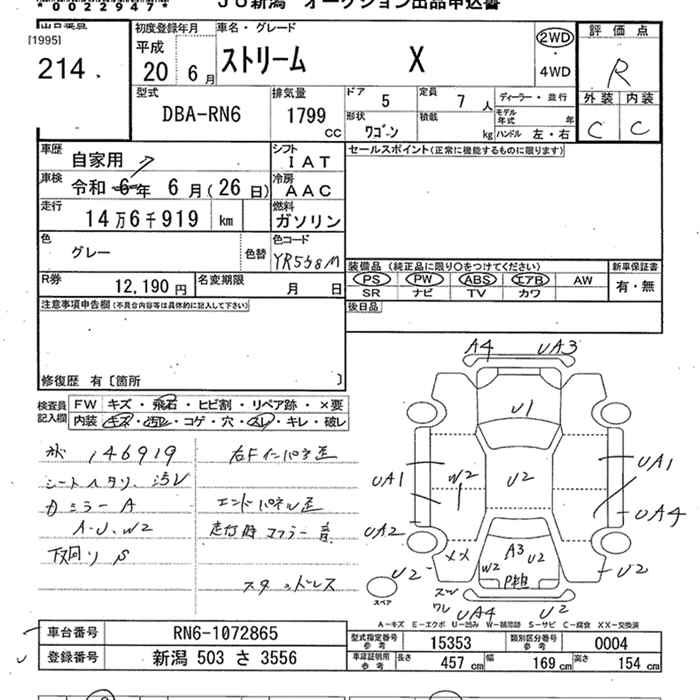 *0022947*
JU新潟 オークション出品申込書
出品番号
[1995]
214.
初度登録年月
平成
20 年 6 月
車名・グレード
ストリーム X
2WD
・
4WD
評価点
R
外装 内装
C C
型式
DBA-RN6
排気量
1799
CC
ドア
5
定員
7 人
形状
ワゴーン
積載
kg
ディーラー・並行
モデル年式 年
ハンドル 左・右
車歴
自家用
車検
令和 6年 6月(26日)
走行
14万6千919 km
色
グレー
色替
シフト
IAT
冷房
AAC
燃料
ガソリン
色コード
YR558M
R券
12,190 円
名変期限
月 日
セールスポイント(正常に機能するものに限ります)
装備品 (純正品に限り○をつけてください)
PS PW ABS エアB AW
SR ナビ TV カワ
新車保証書
有・無
後日品
注意事項申告欄(不具合内容等は具体的に記入して下さい)
修復歴 有〔箇所 〕
検査員
記入欄
FW キズ・飛石・ヒビ割・リペア跡・×要
内装 キズ・汚レ・コゲ・穴・スレ・キレ・破レ
146919
シートヘタリ、汚レ
カミラーA
A・U、W2
下回りS
右Fインパネ歪
エンドパネル歪
走行時マフラー音
スタッドレス
A4 UA3
U1
UA1 W2 U2 UA1
UA4
UA2
U2
A3 U2
W2
P粗
U2
UA4 U2
スペア
A-キズ E-エクボ U-凹み W-補修跡 S-サビ C-腐食 XX-交換済
車台番号
RN6-1072865
登録番号
新潟 503 さ 3556
型式指定番号
参考
15353
類別区分番号
参考
0004
車庫証明用
参考
長さ 457 cm 幅 169 cm 高さ 154 cm